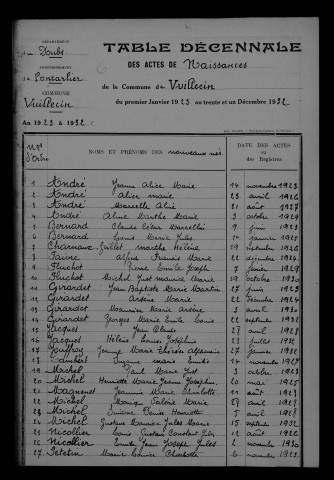 DÉPARTEMENT
du Doubs
TABLE DÉCENNALE
ARRONDISSEMENT
DES ACTES DE Naissances
de Pontarlier
de la Commune de Vuillecin
COMMUNE
Vuillecin
du premier Janvier 1923 au trente et un Décembre 1932
An 1923 à 1932
Nos d'ordre
NOMS ET PRÉNOMS DES nouveaux-nés
DATE DES ACTES ou des Registres
1 André Jeanne Alice Marie 14 novembre 1923
2 André Alice Marie 23 avril 1926
3 André Marcelle Aline août 1928
4 André Aline Marthe Marie 3 octobre 1929
5 Bernard Claude César Marcellin 9 juin 1923
6 Bernard Marie Jules 14 janvier 1925
7 Charnaux Juliet Marthe Hélène 29 septembre 1926
8 Favre Alfred Francis Marie 22 décembre 1924
9 Pluchot Pierre Emile Joseph 7 février 1929
10 Pluchot Michel Just Marie 19 octobre 1930
11 Girardet Jean Baptiste Marie Martin 27 juin 1923
12 Girardet Arsène Marie 22 décembre 1924
13 Girardet Maurice Marie Arsène 3 avril 1930
14 Girardet Georges Marie Emile Louis 22 septembre 1931
15 Jacquet Jean Claude 27 avril 1928
16 Jacquet Hélène Louise Joséphine 23 juillet 1931
17 Jeanne Marie Thérèse 27 février 1932
18 Suzanne Marie Emilie 14 novembre 1925
19 Michel Paul Marie Just 3 octobre 1923
20 Michel Henriette Marie Jeanne Joséphine 20 mai 1925
21 Magnenet Jeannine Marie Charlotte 21 août 1927
22 Michel Monique Valérie Marie 27 avril 1928
23 Michel Simone Louise Henriette 5 avril 1928
24 Michel Gustave Maurice Jules Marie 15 septembre 1932
25 Nicollier Louis Gustave Constant Jules 12 août 1926
26 Nicollier Emile Jean Joseph Jules 2 novembre 1930
27 Petetin Marie Louise Charlotte 6 novembre 1923